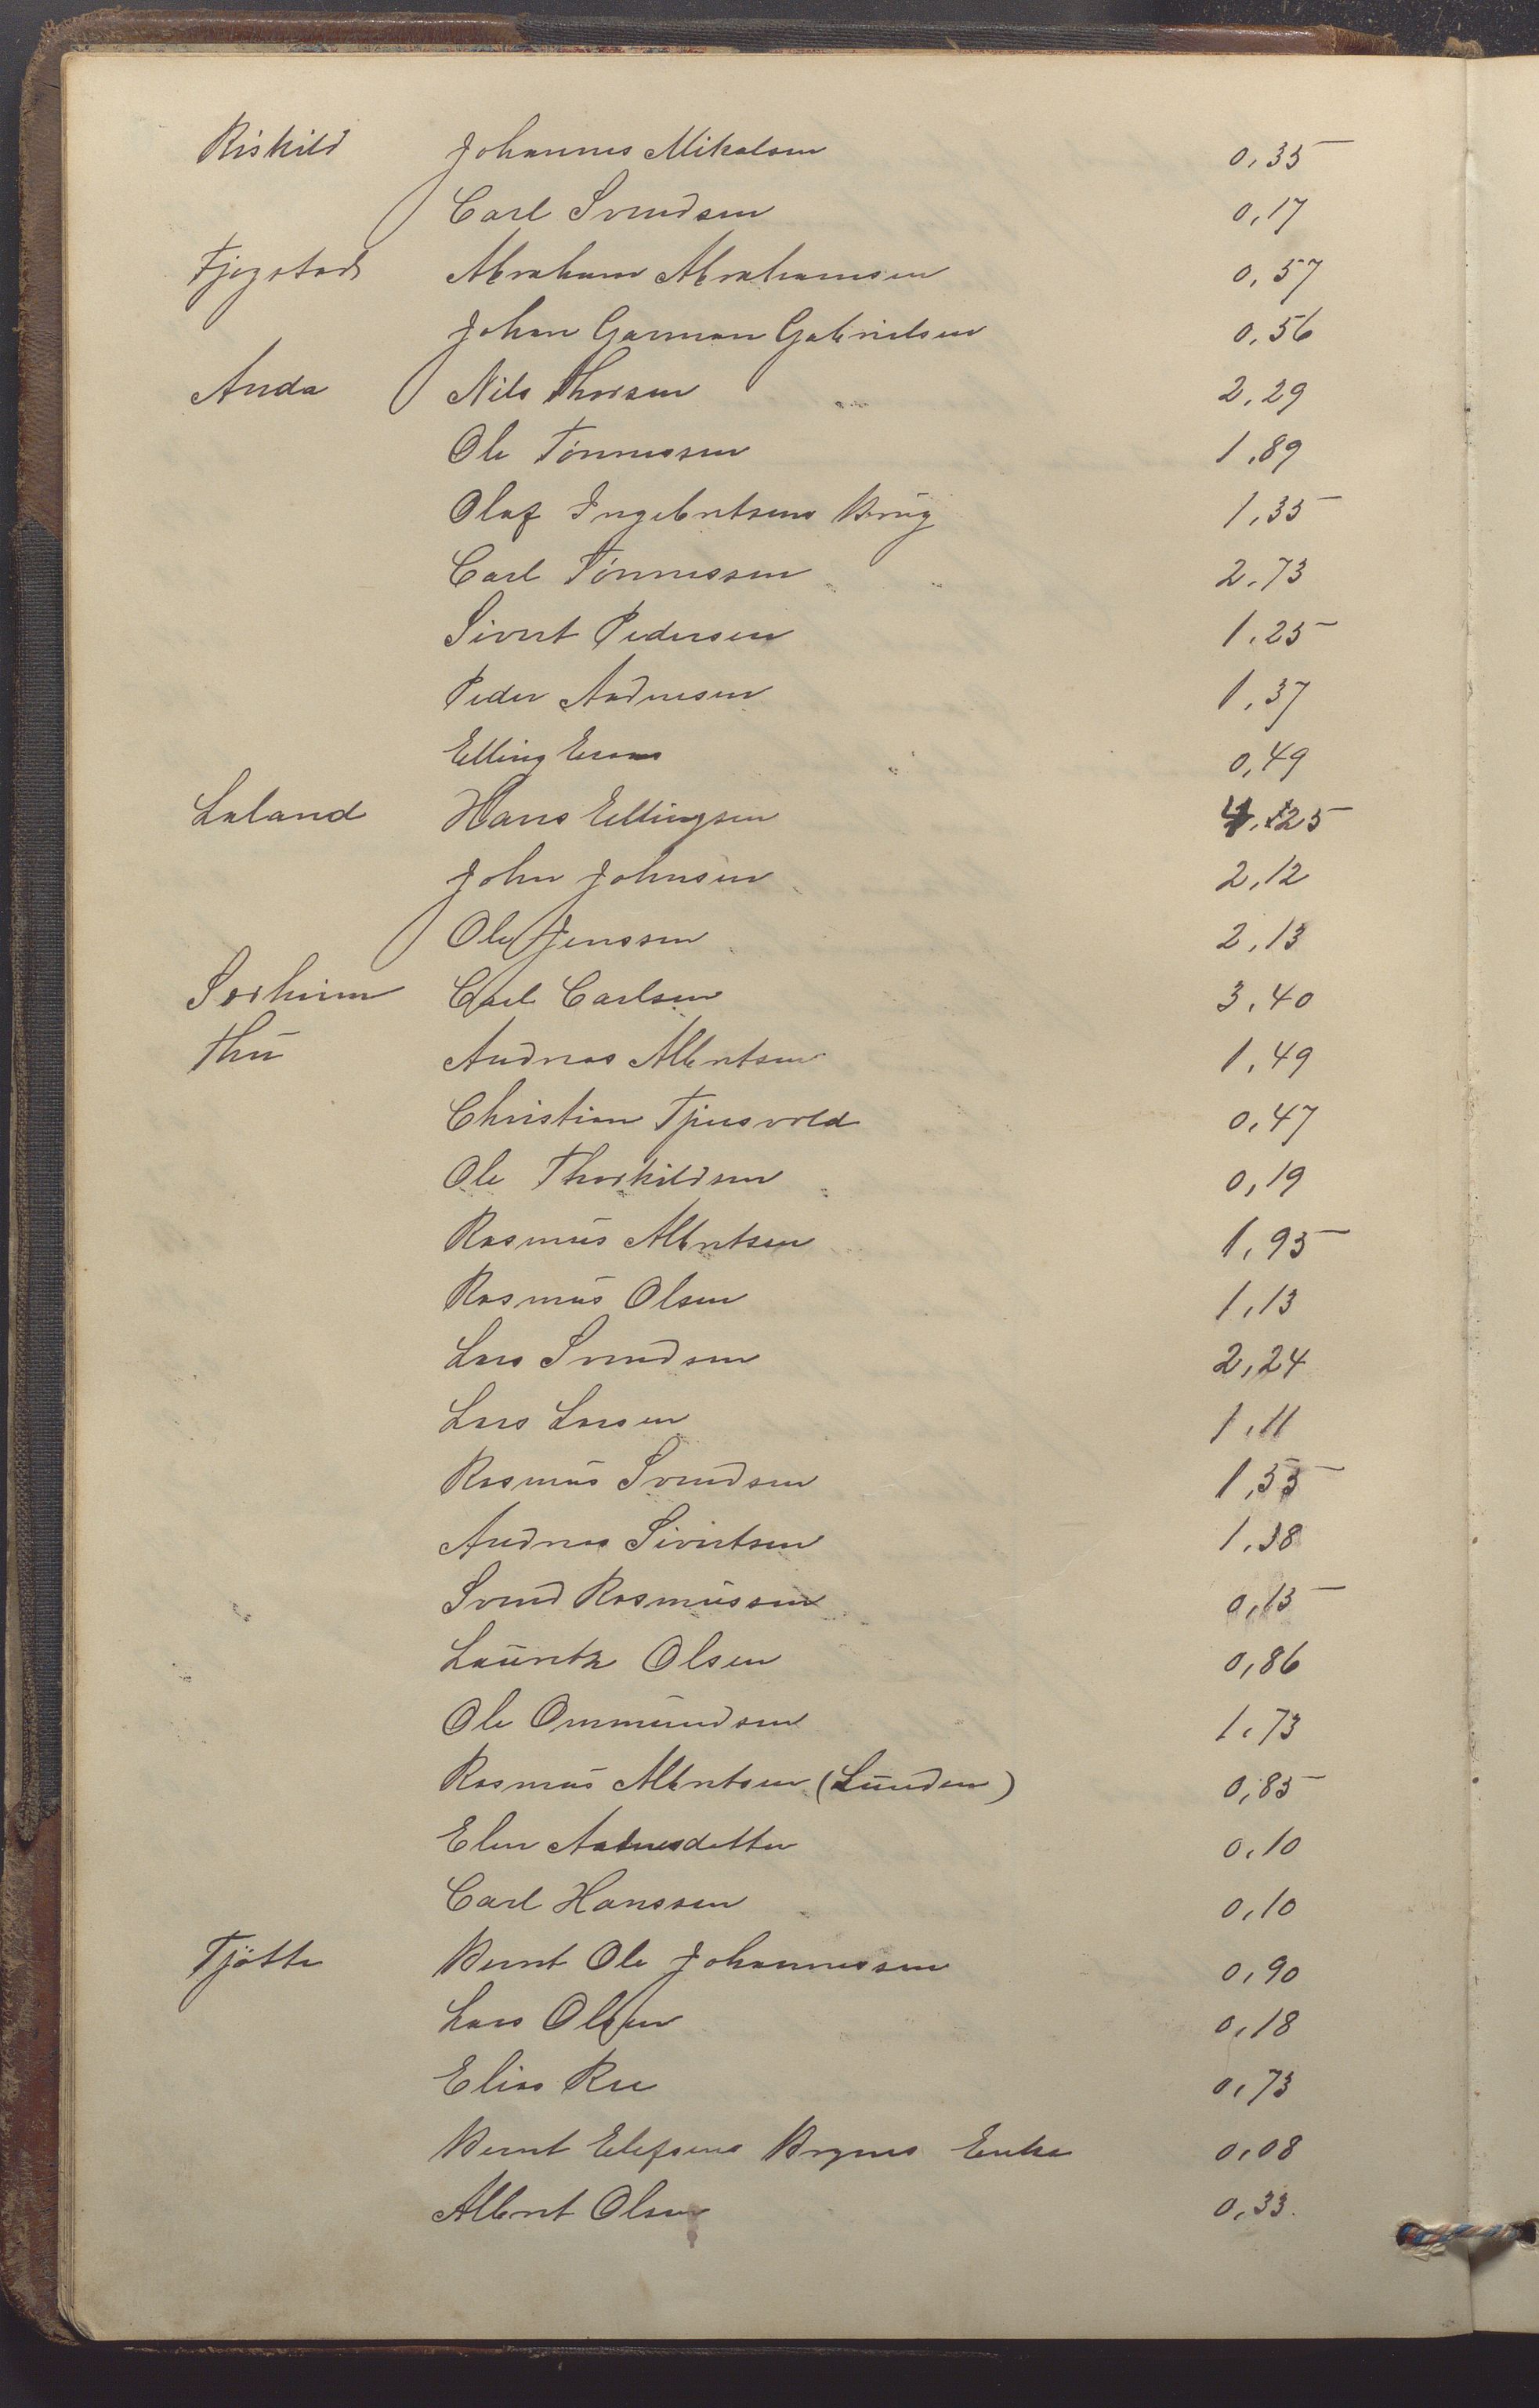 Riskild Johannes Mikalsen 0,35
Carl Svendsen 0,17
Tjøgstad Abraham Abrahamsen 0,57
Johan Garman Gabrielsen 0,56
Anda Nils Thorsen 2,29
Ole Tønnessen 1,89
Olaf Ingebretsens Brug 1,35
Carl Tønnessen 2,73
Sivert Pedersen 1,25
Peder Andresen 1,37
Elling 0,49
Laland Hans Ellingsen 4,25
John Johnsen 2,12
Ole Jenssen 2,13
Sørheim Carl Carlsen 3,40
Thu Andreas Albertsen 1,49
Christian Tjensvold 0,47
Ole Thorkildsen 0,19
Rasmus Albertsen 1,95
Rasmus Olsen 1,13
Lars Svendsen 2,24
Lars Larsen 1,11
Rasmus Svendsen 1,55
Andreas Sivertsen 1,38
Svend Rasmussen 0,15
Lauritz Olsen 0,86
Ole Ommundsen 1,73
Rasmus Albertsen (Lunden) 0,85
Elen 0,10
Carl Hanssen 0,10
Tjøtte Bernt Ole Johannessen 0,90
Lars Olsen 0,18
Elias Ree 0,73
Bernt Elefsens Brynes Enke 0,08
Albert Olsen 0,33.